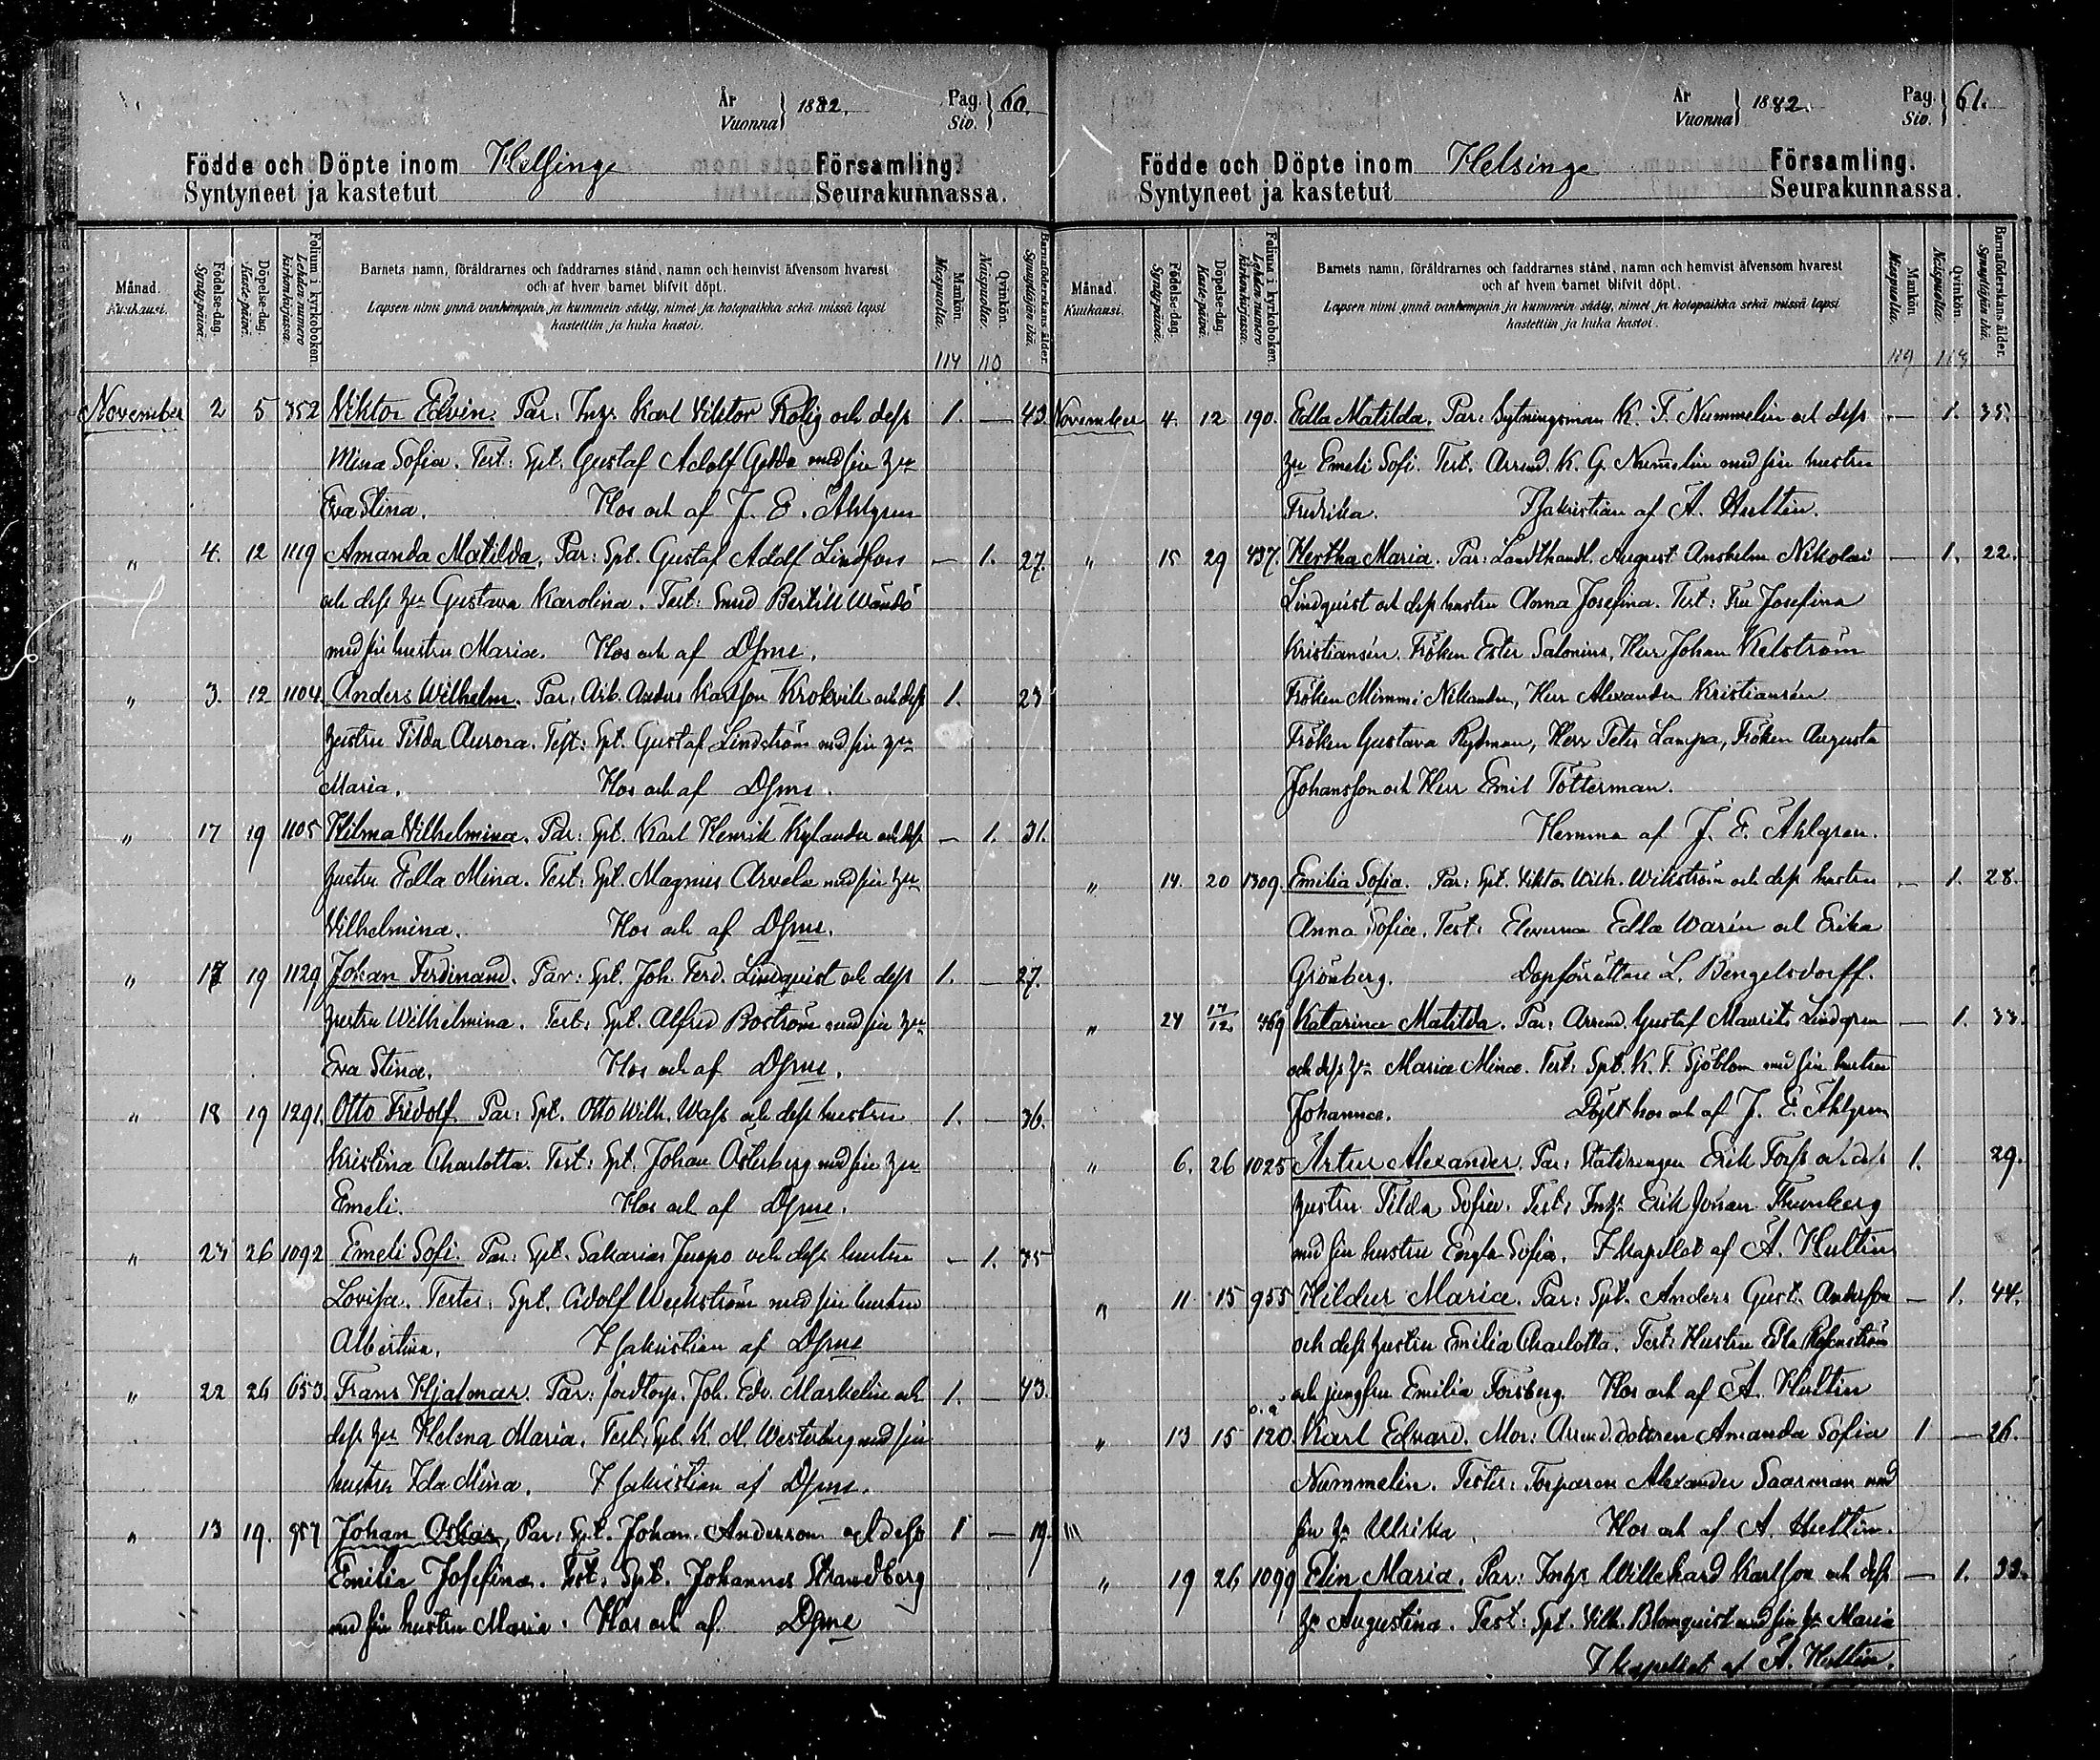 År
Vuonna } 1882.
Pag.
Siv. } 60.
Födde och Döpte inom Helsinge Församling.
Syntyneet ja kastetut Seurakunnassa.
Månad.
Kuukausi.
Födelse-dag.
Synty-päivä.
Döpelse-dag.
Kaste-päivä.
Folium i kyrkoboken.
Lehden numero kirkonkirjassa.
Barnets namn, föräldrarnes och faddrarnes stånd, namn och hemvist äfvensom hvarest
och af hvem barnet blifvit döpt.
Lapsen nimi ynnä vanhempain ja kummein sääty, nimet ja kotopaikka sekä missä lapsi
kastettiin ja kuka kastoi.
Mankön.
Miespuolia.
Qvinkön.
Naispuolia.
Barnaföderskans ålder.
Synnyttäjän ikä.
114 110
November 2 5 352 Viktor Edvin. Par: Inh: Karl Viktor Rolig och dess 1. — 43.
Mina Sofia. Test: Spt. Gustaf Adolf Gädda med sin hu
Eva Stina. Hos och af J. E. Ahlgren
" 4. 12 1119 Amanda Matilda. Par: Spt. Gustaf Adolf Lindfors — 1. 27.
och dess hu Gustava Karolina. Test: Smed Bertill Wändö
med sin hustru Maria. Hos och af Dsme.
" 3. 12 1104 Anders Wilhelm. Par: Arb. Anders Karlsson Krokvik och dess 1. 23
hustru Tilda Aurora. Test: Spt. Gustaf Lindström med sin hu
Maria. Hos och af Dsme.
" 17 19 1105 Hilma Vilhelmina. Par: Spt. Karl Henrik Kylander och dess — 1. 31.
hustru Edla Mina. Test: Spt. Magnus Arvela med sin hu
Vilhelmina. Hos och af Dsme.
" 17 19 1129 Johan Ferdinand. Par: Spt. Joh. Ferd. Lindquist och dess 1. — 27.
hustru Wilhelmina. Test: Spt. Alfred Boström med sin hu
Eva Stina. Hos och af Dsme.
" 18 19 1291. Otto Fridolf. Par: Spt. Otto Wilh. Wass och dess hustru 1. — 36.
Kristina Charlotta. Test: Spt. Johan Österberg med sin hu
Emeli. Hos och af Dsme.
" 23 26 1092 Emeli Sofi. Par: Spt. Sakarias Juspo och dess hustru — 1. 35
Lovisa. Testes: Spt. Adolf Weckström med sin hustru
Albertina. I sakristian af Dsme
" 22 26 653. Frans Hjalmar. Par: jordtorp. Joh. Edv. Markelin och 1. — 43.
dess hu Helena Maria. Test: Spt. K. M. Westerberg med sin
hustru Ida Mina. I sakristian af Dsme.
" 13 19. 957 Johan Oskar, Par: Spt. Johan Andersson och dess 1 — 19.
Emilia Josefina. Test: Spt. Johannes Strandberg
med sin hustru Maria. Hos och af Dsme
År
Vuonna } 1882.
Pag.
Siv. } 61.
Födde och Döpte inom Helsinge Församling.
Syntyneet ja kastetut Seurakunnassa.
Månad.
Kuukausi.
Födelse-dag.
Synty-päivä.
Döpelse-dag.
Kaste-päivä.
Folium i kyrkoboken.
Lehden numero kirkonkirjassa.
Barnets namn, föräldrarnes och faddrarnes stånd, namn och hemvist äfvensom hvarest
och af hvem barnet blifvit döpt.
Lapsen nimi ynnä vanhempain ja kummein sääty, nimet ja kotopaikka sekä missä lapsi
kastettiin ja kuka kastoi.
Mankön.
Miespuolia.
Qvinkön.
Naispuolia.
Barnaföderskans ålder.
Synnyttäjän ikä.
119 113
November 4. 12 190. Edla Matilda. Par: Sytningsman K. F. Nummelin och dess — 1. 35.
hu Emeli Sofi. Test. Arrend. K. G. Nummelin med sin hustru
Fredrika. I sakristian af A. Hultin.
" 15 29 437. Hertha Maria. Par: Landthandl. August Anshelm Nikolai — 1. 22.
Lindquist och dess hustru Anna Josefina. Test: Fru Josefina
Kristiansén. Fröken Ester Salonius, Herr Johan Kelström
Fröken Mimmi Nikander, Herr Alexander Kristiansén
Fröken Gustava Rydman, Herr Peter Lampa, Fröken Augusta
Johansson och Herr Emil Tötterman.
Hemma af J. E. Ahlgren.
" 14. 20 1309. Emilia Sofia. Par: Spt. Viktor Wilh. Wikström och dess hustru — 1. 28.
Anna Sofia. Test: Eleverna Edla Warén och Erika
Grönberg. Dopförrättare L. Bengelsdorff.
" 24 17/12. 469 Katarina Matilda. Par: Arrend. Gustaf Maurits Lindgren — 1. 33.
och dess hu Maria Mina. Test: Spt. K. F. Sjöblom med sin hustru
Johanna. Döpt hos och af J. E. Ahlgren
" 6. 26 1025 Artur Alexander. Par: Statdrengen Erik Forss och dess 1. 29.
hustru Tilda Sofia. Test: Inh: Erik Johan Thunberg
med sin hustru Engla Sofia. I kapellet af A. Hultin
" 11 15 955 Hildur Maria. Par: Spt. Anders Gust. Andersson — 1. 44.
och dess hustru Emilia Charlotta. Test: Hustru Edla Rosenström
och jungfru Emilia Forsberg. Hos och af A. Hultin
o. ä.
" 13 15 120. Karl Edvard. Mor: Arrend. dottren Amanda Sofia 1 — 26.
Nummelin. Testes: Torparen Alexander Saarman med
sin hu Ulrika. Hos och af A. Hultin.
" 19 26 1099 Elin Maria. Par: Inh: Willehard Karlsson och dess — 1. 33.
hu Augustina. Test: Spt. Vilh. Blomquist med sin hu Maria
I kapellet af A. Hultin.